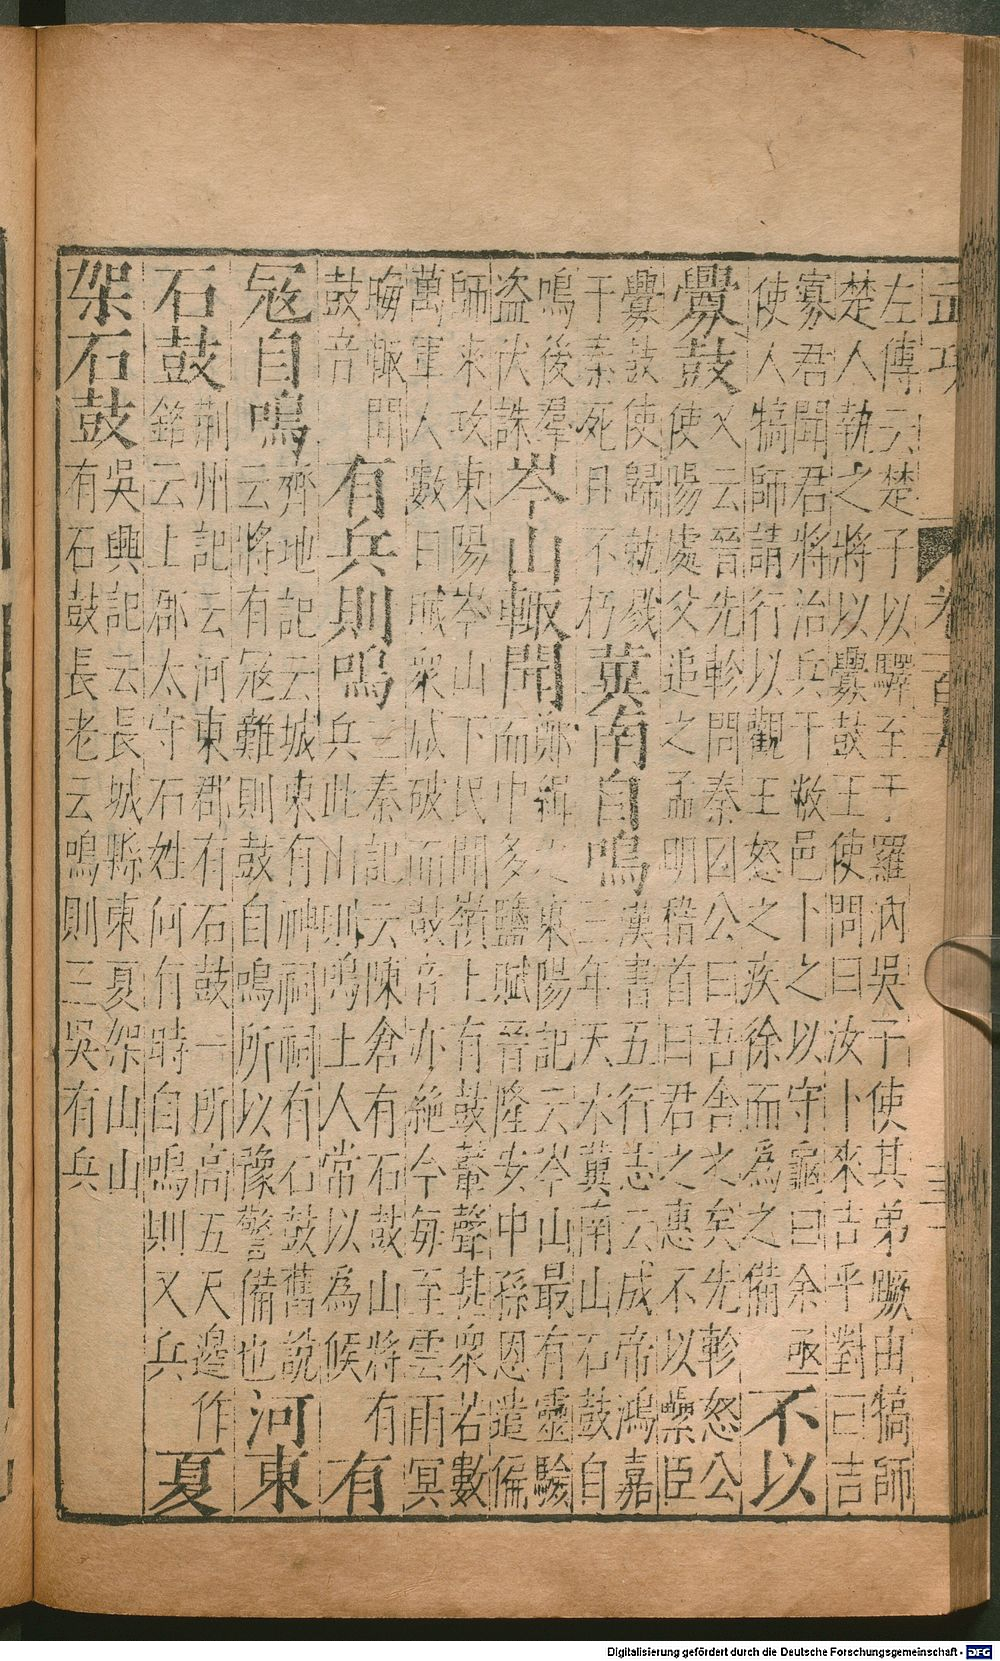 武功
左傳云楚子以驛至于羅汭吳子使其弟蹶由犒師
楚人執之將以釁鼓王使問曰汝卜來吉乎對曰吉
寡君聞君將治兵于敝邑卜之以守龜曰余亟
使人犒師請行以觀王怒之疾徐而為之備
不以
釁鼓
又云晉先軫問秦囚公曰吾舍之矣先軫怒公
使陽處父追之孟明稽首曰君之惠不以纍臣
釁鼓使歸就戮
于秦死且不朽
冀南自鳴
漢書五行志云成帝鴻嘉
三年天水冀南山石鼓自
鳴後羣
盜伏誅
岑山輙聞
鄭緝之東陽記云岑山最有靈驗
而中多鹽賦晉隆安中孫恩遣偏
師來攻東陽岑山下民聞嶺上有鼓鞞聲甚衆若數
萬軍人數日賊衆咸破而鼓音亦絶今每至雲雨冥
晦輙聞
鼓音
有兵則鳴
三秦記云陳倉有石鼓山將有
兵此山則鳴土人常以為候
有
寇自鳴
齊地記云城東有神祠祠有石鼓舊說
云將有寇難則鼓自鳴所以豫警備也
河東
石鼓
荊州記云河東郡有石鼓一所高五尺邉作
銘云上郡太守石姓何有時自鳴則又兵
夏
架石鼓
吳興記云長城縣東夏架山山
有石鼓長老云鳴則三吳有兵
Digitalisierung gefördert durch die Deutsche Forschungsgemeinschaft - DFG